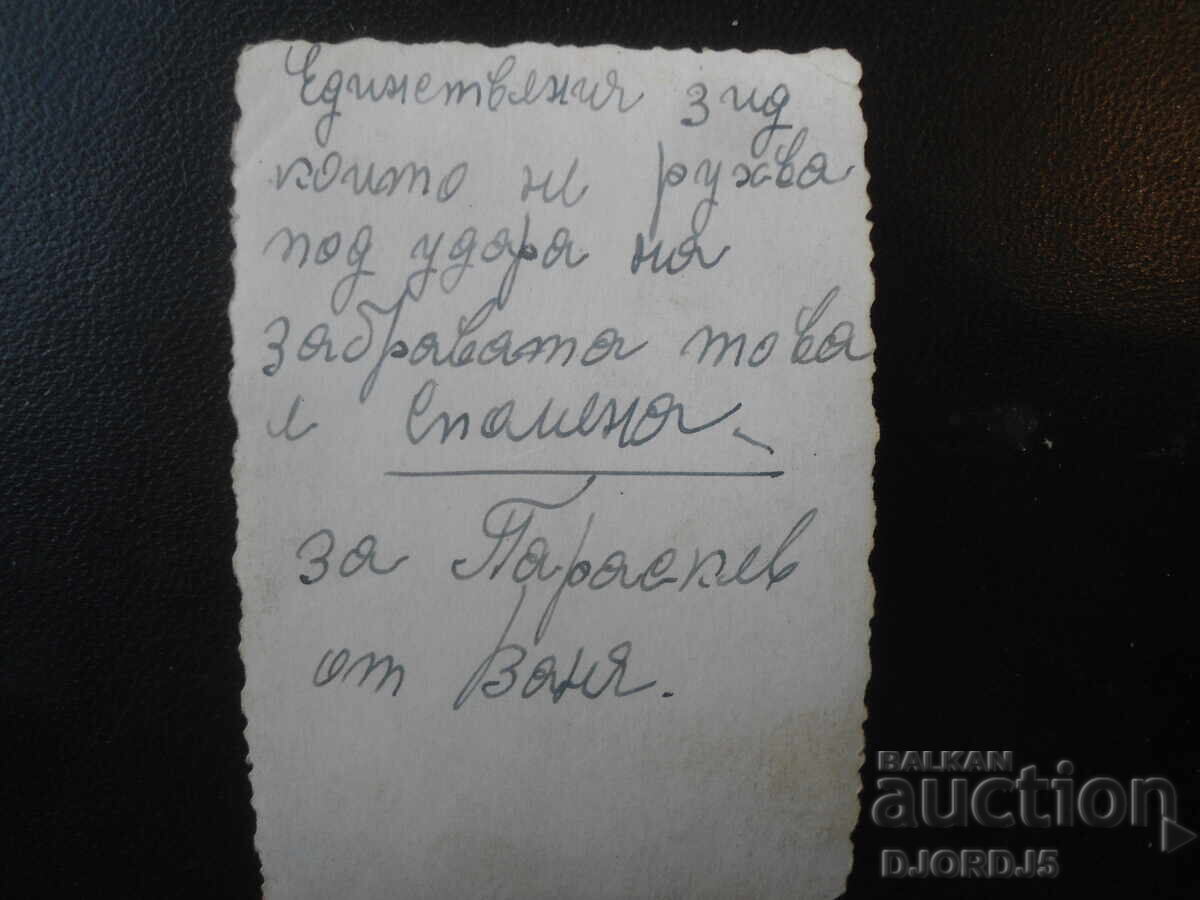 Единствения зид
които не рухва
под удара на
забравата това
е спомена
за Параскев
от Ваня.
BALKAN
auction
DJORDJ5